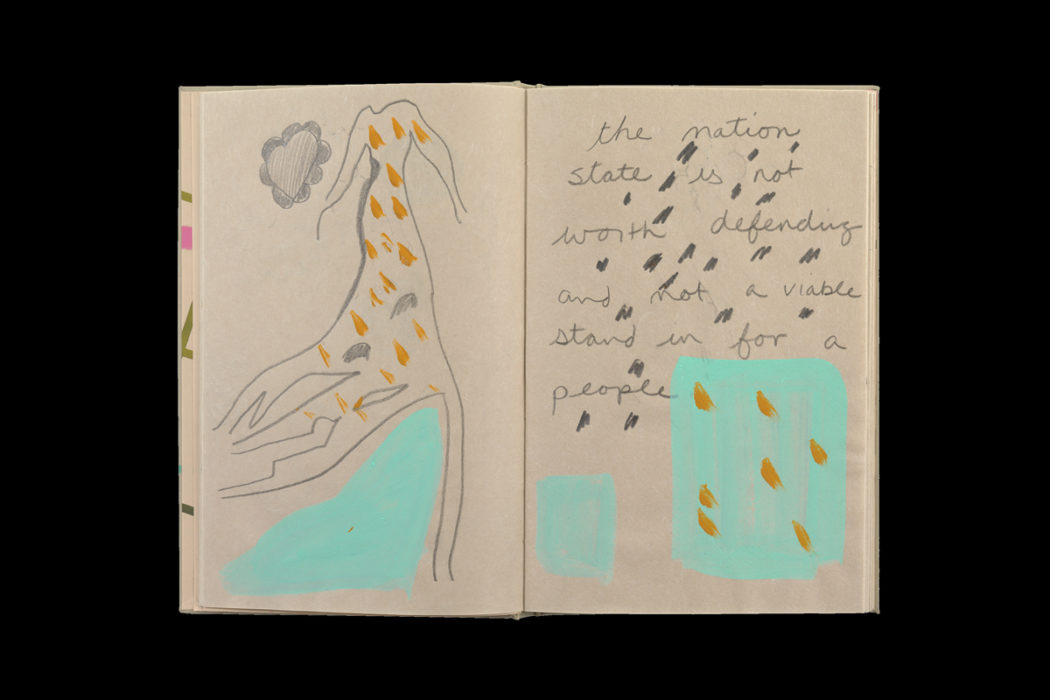 the nation
state is not
worth defending
and not a viable
stand in for a
people